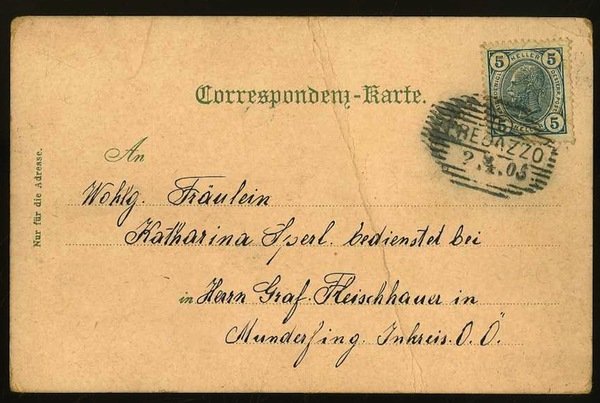 5 HELLER 5
5 5
Correspondenz-Karte.
PREDAZZO
2.4.05
Nur für die Adresse.
An
Wohlg. Fräulein
Katharina Sperl. bedienstet bei
in Herrn Graf. Fleischhauer in
Munderfing. Inkreis. O. Ö.